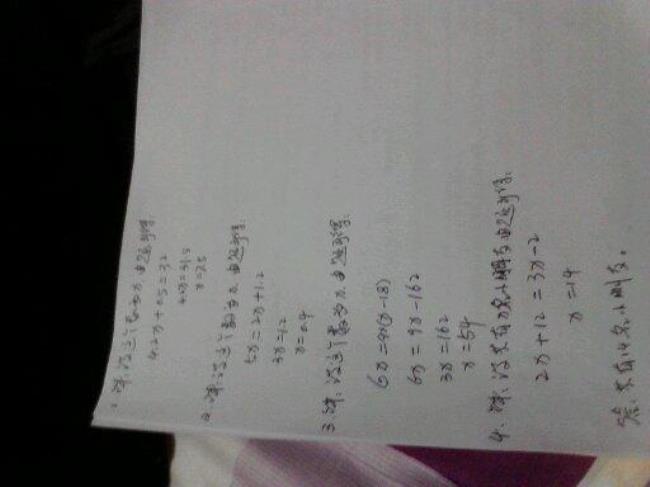 1.解:设这个数为x,由题可得:
4.2x+0.5=32
4.2x=31.5
x=7.5
2.解:设这个数为x,由题可得:
5x=2x+1.2
3x=1.2
x=0.4
3.解:设这个数为x,由题可得:
6x=9(x-18)
6x=9x-162
3x=162
x=54
4.解:设共有x名小朋友,由题可得:
2x+12=3x-2
x=14
答:共有14名小朋友。